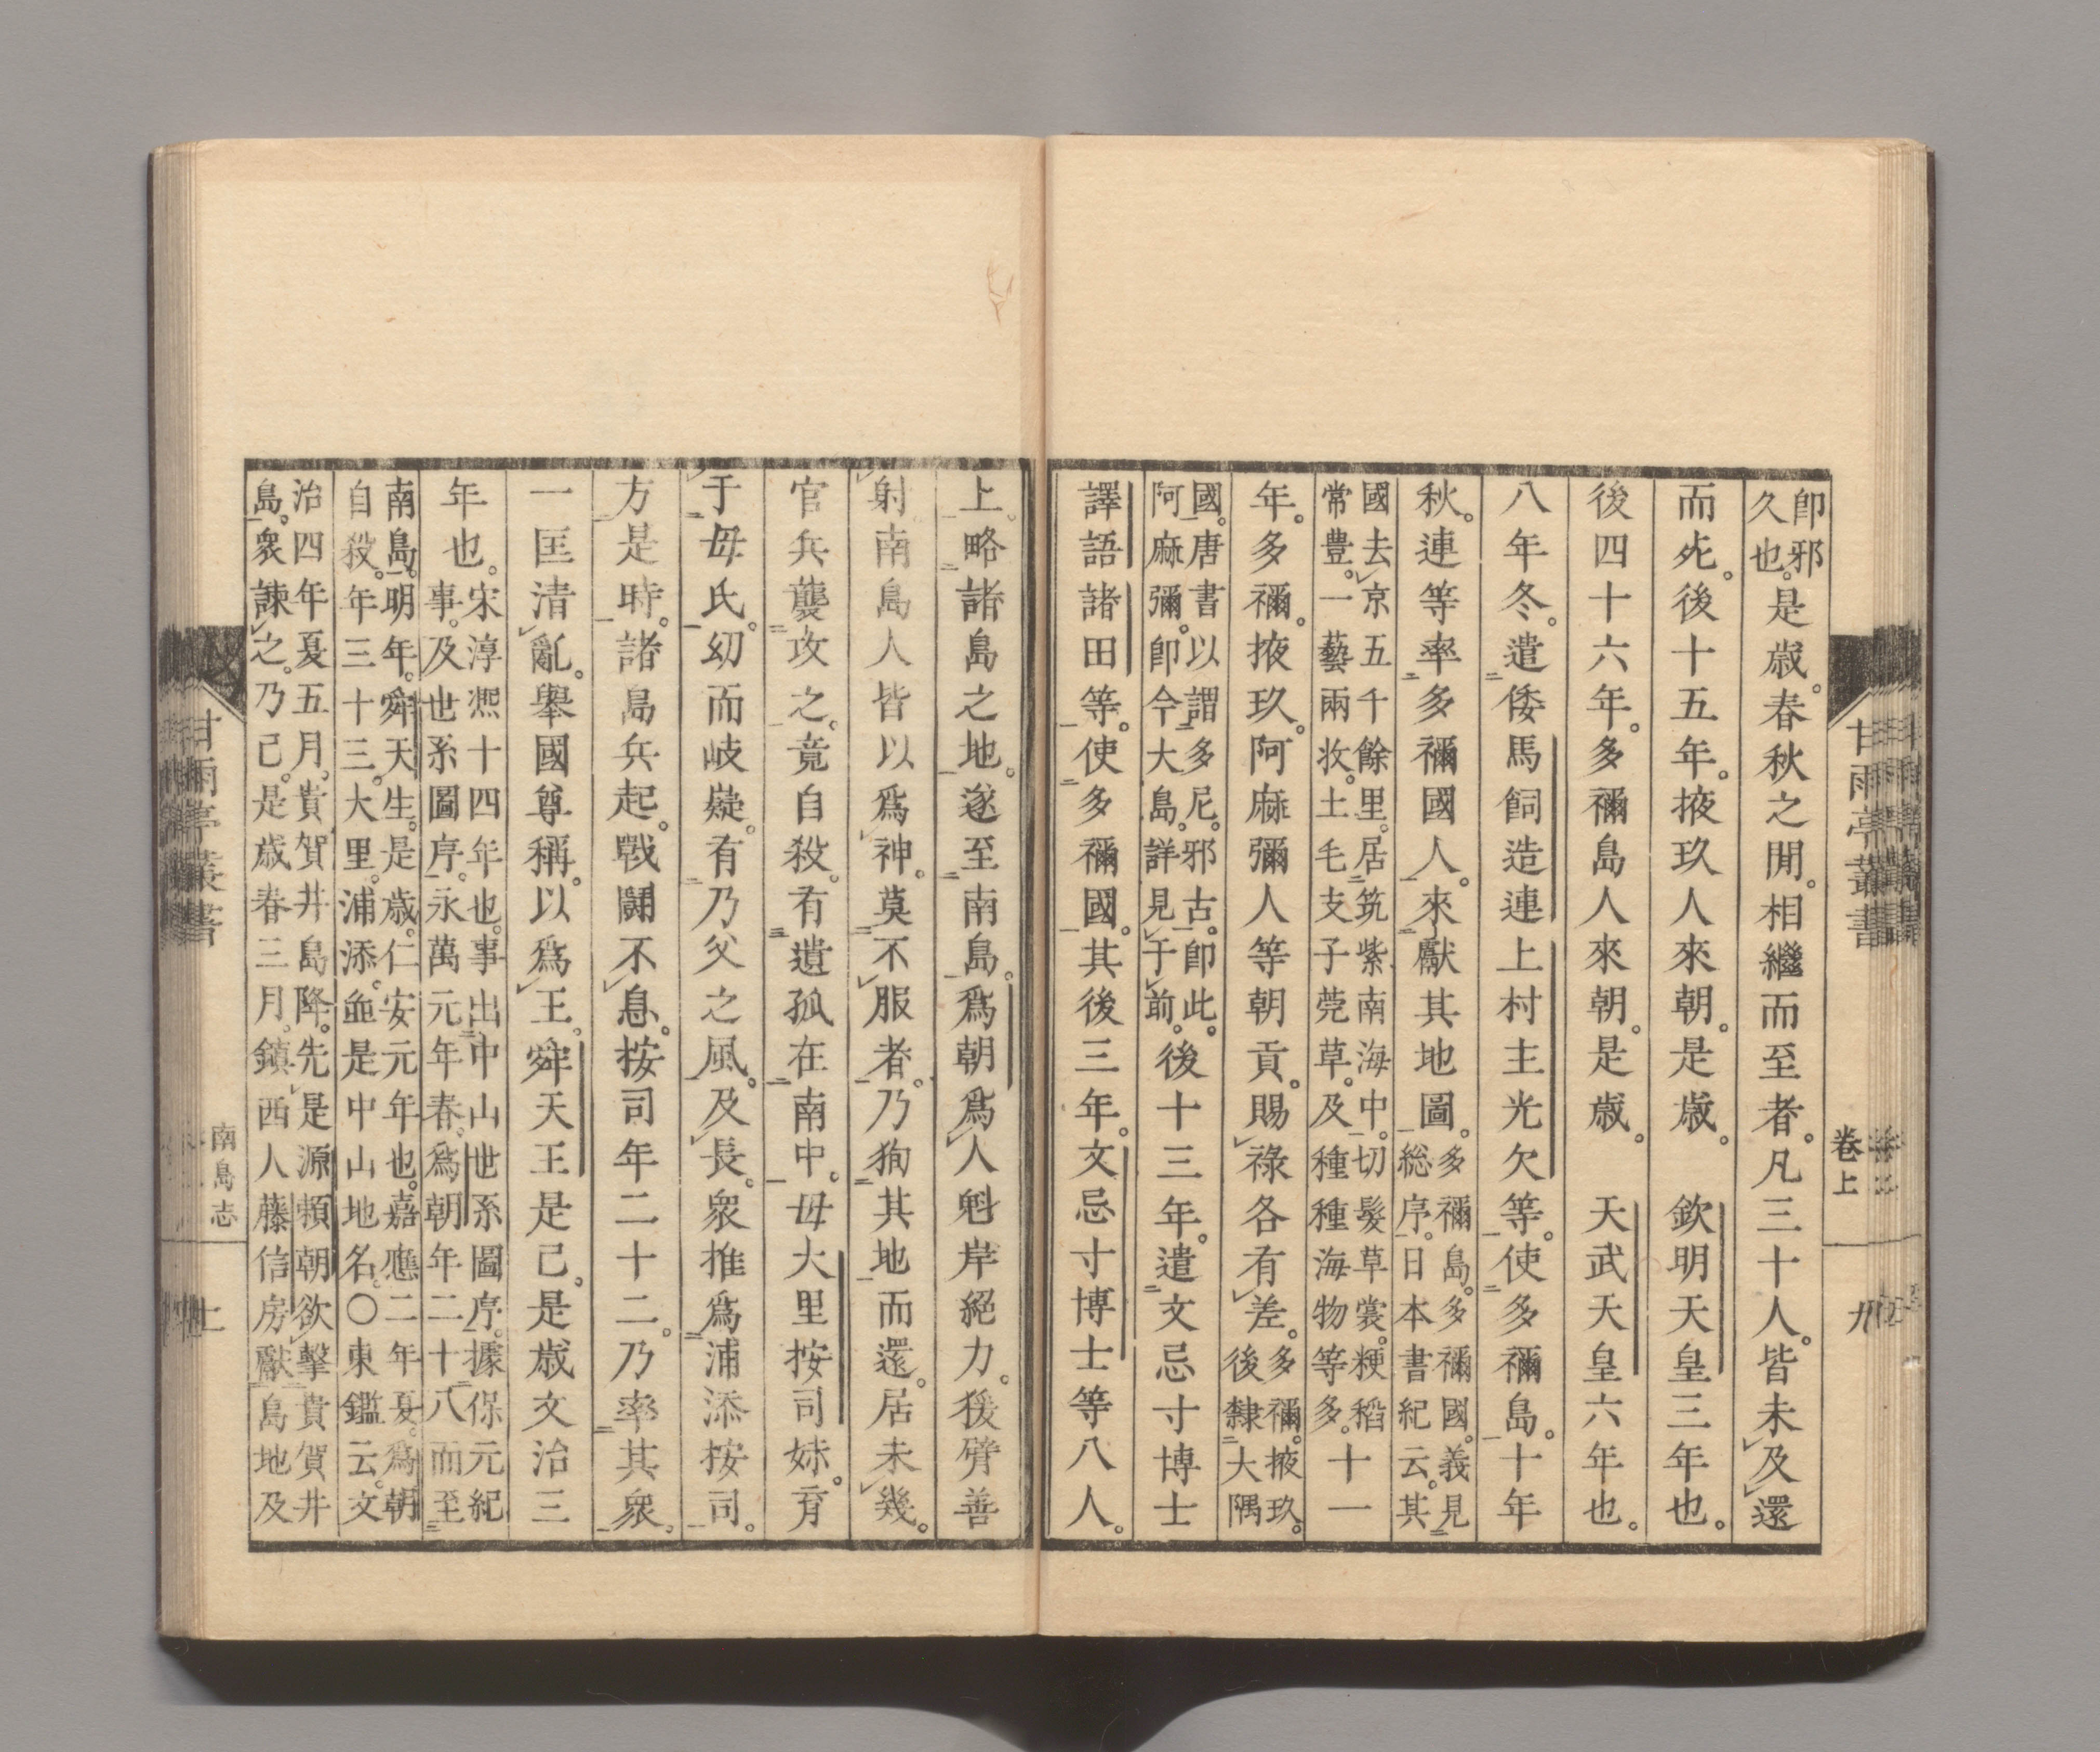 卽邪久也。是歳。春秋之閒。相繼而至者。凡三十人。皆未及還
而死。後十五年。掖玖人來朝。是歳。　欽明天皇三年也。
後四十六年。多禰島人來朝。是歳。　天武天皇六年也。
八年冬。遣倭馬飼造連上村主光欠等。使多禰島。十年
秋。連等率多禰國人。來獻其地圖。多禰島。多禰國。義見総序。日本書紀云。其
國去京五千餘里。居筑紫南海中。切髮草裳。粳稻常豊。一藝兩收。土毛支子莞草。及種種海物等多。十一
年。多禰。掖玖。阿麻彌人等朝貢。賜祿各有差。多禰。掖玖。後隸大隅
國。唐書以謂多尼。邪古。卽此。阿麻彌。卽今大島。詳見于前。後十三年。遣文忌寸博士
譯語諸田等。使多禰國。其後三年。文忌寸博士等八人。
甘雨亭叢書
卷上
九
上。略諸島之地。遂至南島。爲朝爲人魁岸絕力。猨臂善
射。南島人皆以爲神。莫不服者。乃狥其地而還。居未幾。
官兵襲攻之。竟自殺。有遺孤在南中。毋大里按司妹。育
于毋氏。幼而岐嶷。有乃父之風。及長。衆推爲浦添按司。
方是時。諸島兵起。戰鬪不息。按司年二十二。乃率其衆。
一匡淸亂。擧國尊稱。以爲王。舜天王是已。是歳文治三
年也。宋淳熈十四年也。事出中山世系圖序。據保元紀事。及世系圖序。永萬元年春。爲朝年二十八而至
南島。明年。舜天生。是歳。仁安元年也。嘉應二年夏。爲朝自殺。年三十三。大里。浦添。並是中山地名。〇東鑑云。文
治四年夏五月。貴賀井島降。先是源賴朝欲擊貴賀井島。衆諫之。乃已。是歳春三月。鎭西人藤信房獻島地及
甘雨亭叢書
南島志
十